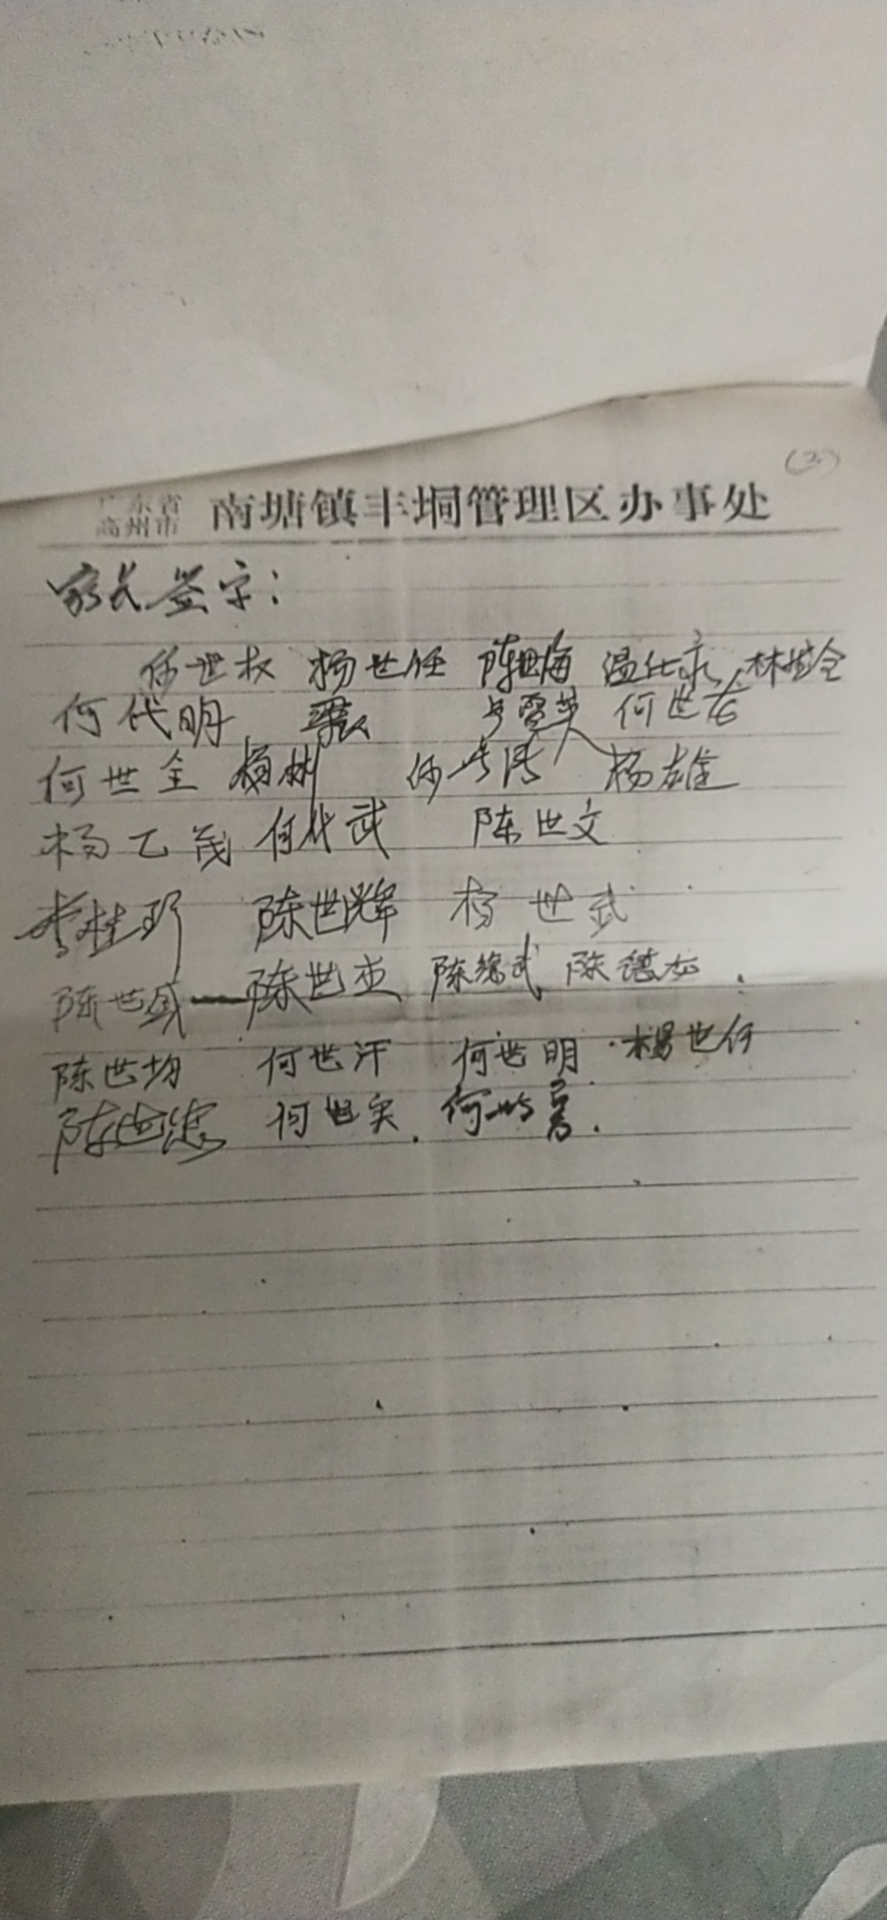 (2)
广东省
高州市 南塘镇丰垌管理区办事处
家长签字：
何世权 杨世任 陈世海 温仕永 林世全
何代明 何世龙
何世全 杨林 杨雄
杨乙茂 何代武 陈世文
李桂珍 陈世辉 杨世武
陈世威 陈世杰 陈德武
陈世均 何世汗 何世明 杨世仔
陈世忠 何世实